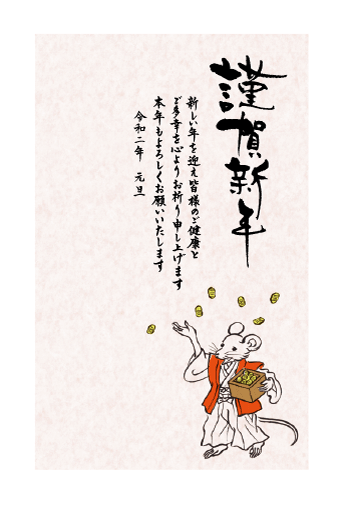 謹賀新年
新しい年を迎え皆様のご健康と
ご多幸を心よりお祈り申し上げます
本年もよろしくお願いいたします
令和二年　元旦